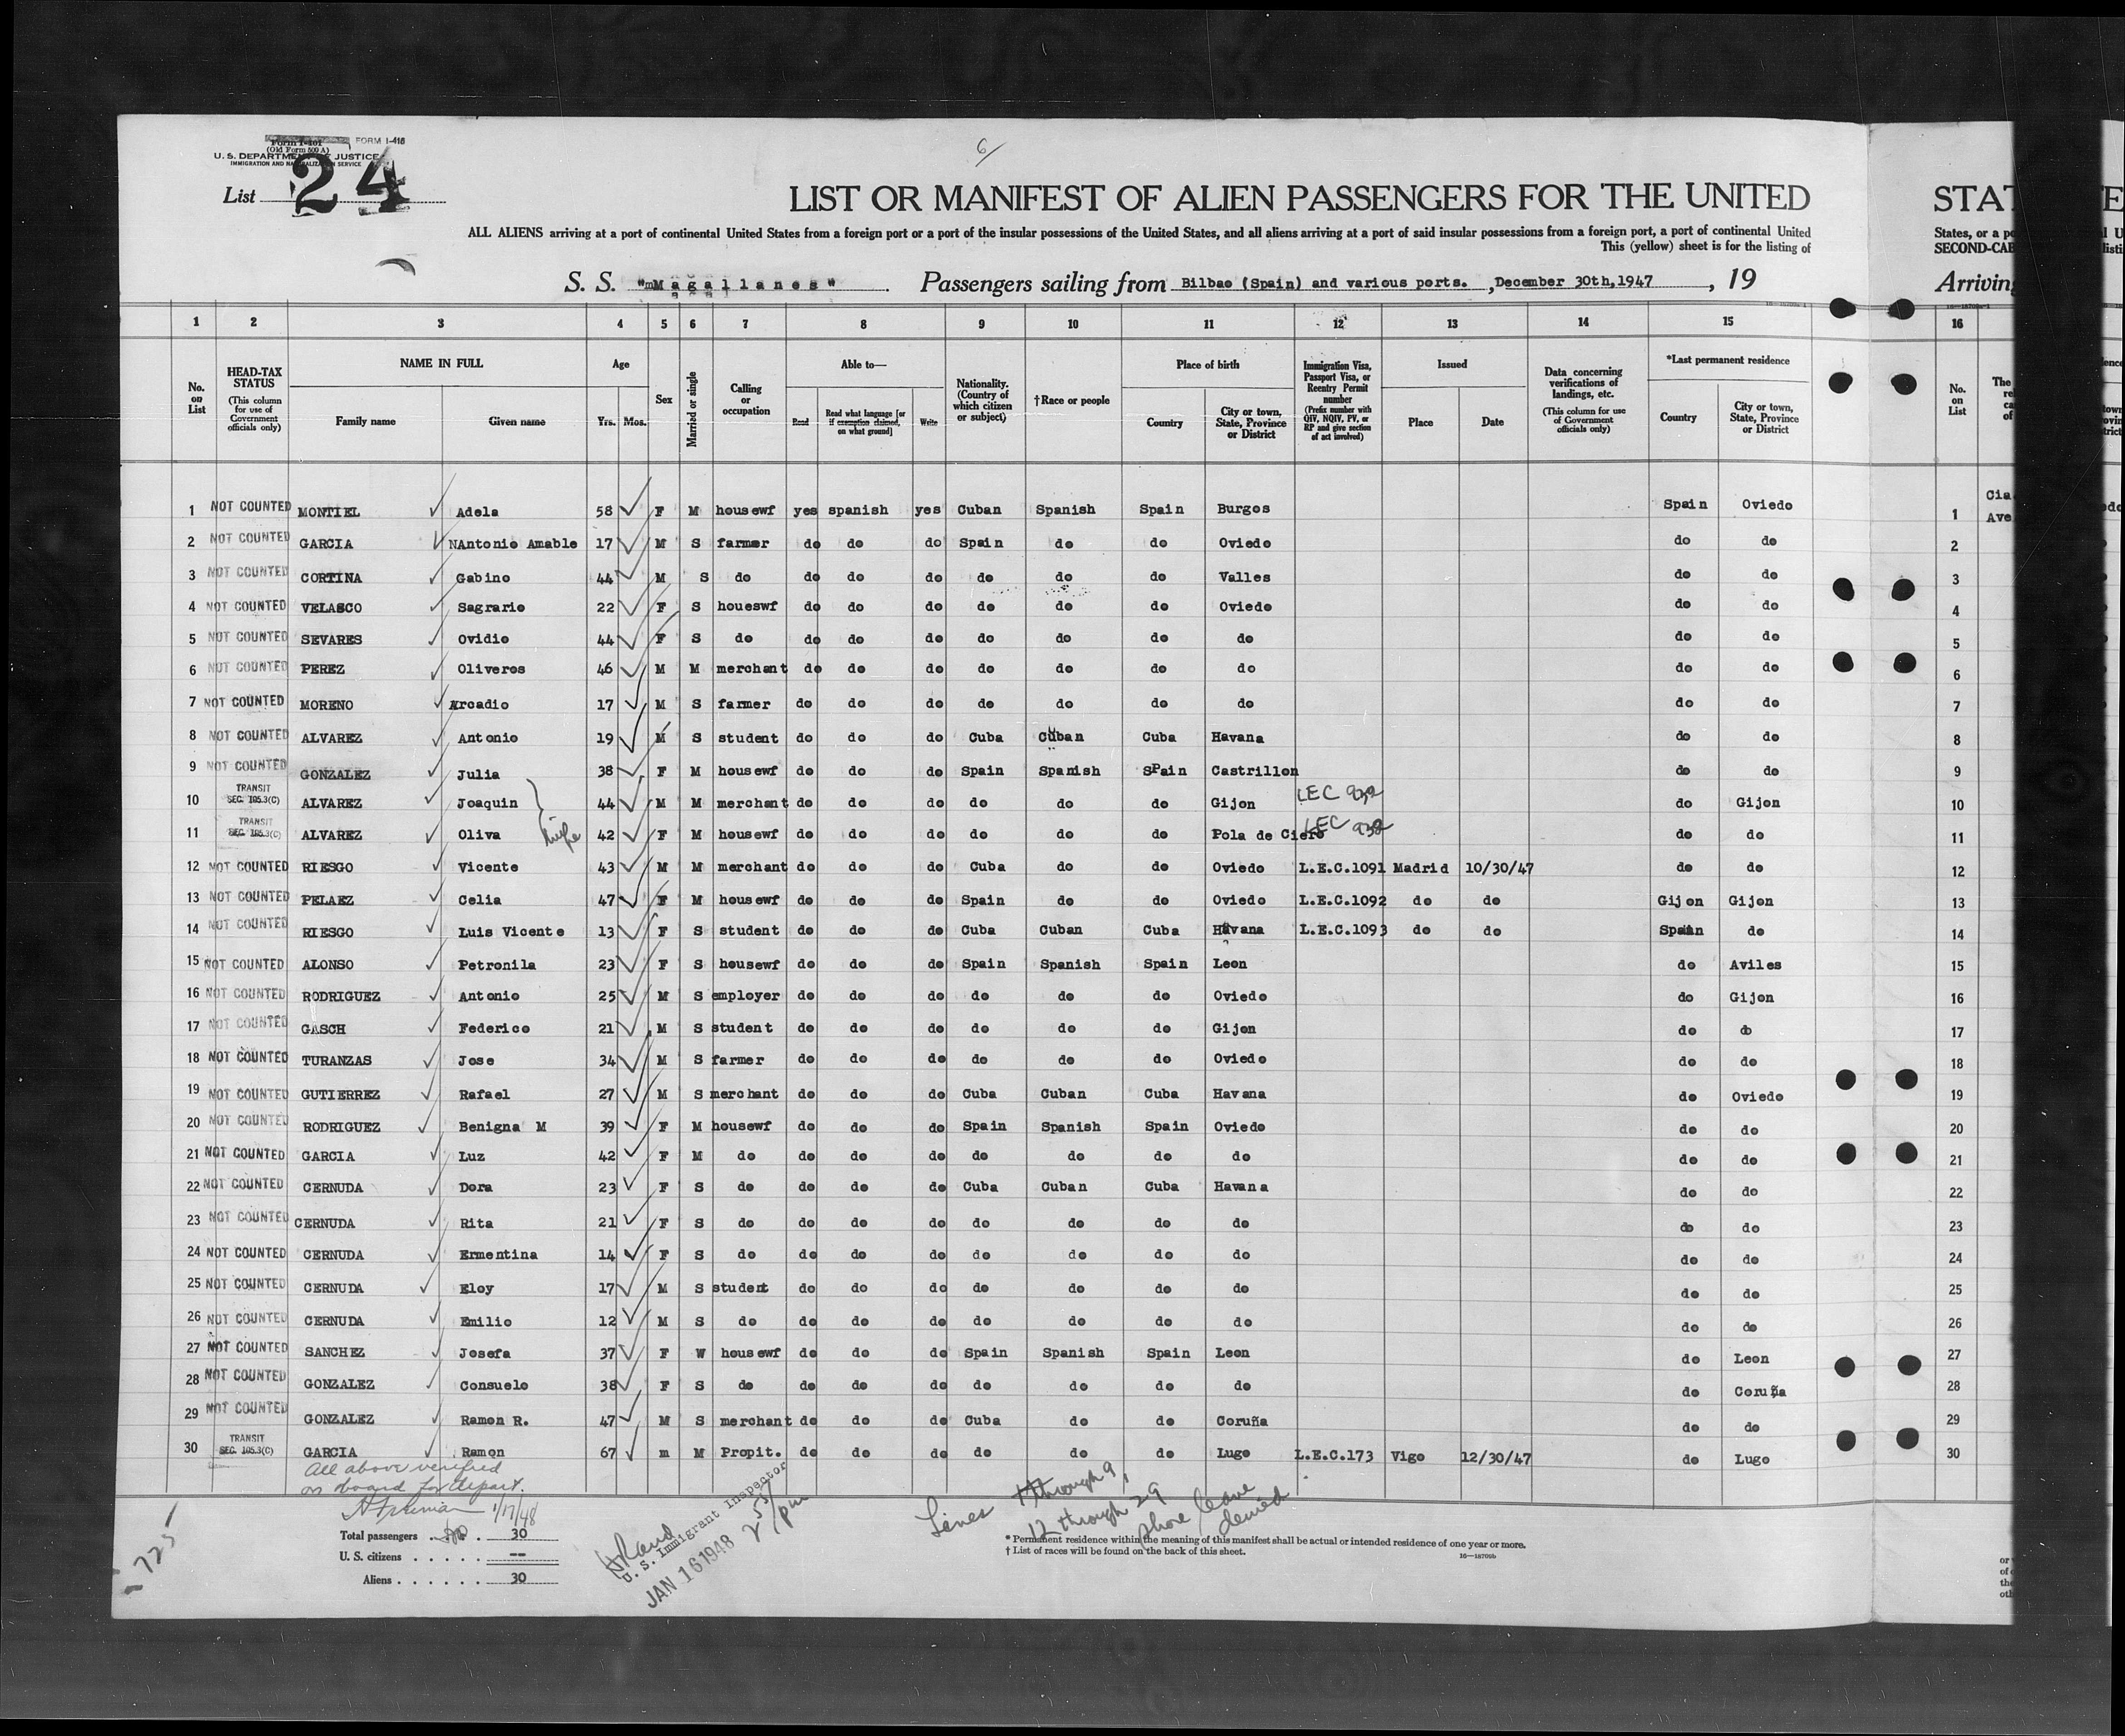 Form I-401 FORM I-416
(Old Form 500 A)
U. S. DEPARTMENT OF JUSTICE
IMMIGRATION AND NATURALIZATION SERVICE
List 24
6/
LIST OR MANIFEST OF ALIEN PASSENGERS FOR THE UNITED
ALL ALIENS arriving at a port of continental United States from a foreign port or a port of the insular possessions of the United States, and all aliens arriving at a port of said insular possessions from a foreign port, a port of continental United
This (yellow) sheet is for the listing of
S. S. "Magallanes" Passengers sailing from Bilbao (Spain) and various ports. , December 30th,1947 , 19
STAT
States, or a po
SECOND-CAB
Arriving
1 2 3 4 5 6 7 8 9 10 11 12 13 14 15 16
No. on List
HEAD-TAX STATUS (This column for use of Government officials only)
NAME IN FULL Family name Given name
Age Yrs. Mos.
Sex
Married or single
Calling or occupation
Able to— Read Read what language [or if exemption claimed, on what ground] Write
Nationality. (Country of which citizen or subject)
†Race or people
Place of birth Country City or town, State, Province or District
Immigration Visa, Passport Visa, or Reentry Permit number (Prefix number with QIV, NQIV, PV, or RP and give section of act involved)
Issued Place Date
Data concerning verifications of landings, etc. (This column for use of Government officials only)
*Last permanent residence Country City or town, State, Province or District
No. on List
1 NOT COUNTED MONTIEL Adela 58 F M housewf yes spanish yes Cuban Spanish Spain Burgos Spain Oviedo 1 Cia Ave
2 NOT COUNTED GARCIA NAntonio Amable 17 M S farmer do do do Spain do do Oviedo do do 2
3 NOT COUNTED CORTINA Gabino 44 M S do do do do do do do Valles do do 3
4 NOT COUNTED VELASCO Sagrario 22 F S houeswf do do do do do do Oviedo do do 4
5 NOT COUNTED SEVARES Ovidio 44 F S do do do do do do do do do do 5
6 NOT COUNTED PEREZ Oliveros 46 M M merchant do do do do do do do do do 6
7 NOT COUNTED MORENO Arcadio 17 M S farmer do do do do do do do do do 7
8 NOT COUNTED ALVAREZ Antonio 19 M S student do do do Cuba Cuban Cuba Havana do do 8
9 NOT COUNTED GONZALEZ Julia 38 F M housewf do do do Spain Spanish SPain Castrillon do do 9
10 TRANSIT SEC. 105.3(C) ALVAREZ Joaquin 44 M M merchant do do do do do do Gijon LEC 932 do Gijon 10
11 TRANSIT SEC. 105.3(C) ALVAREZ Oliva wife 42 F M housewf do do do do do do Pola de Ciero LEC 938 do do 11
12 NOT COUNTED RIESGO Vicente 43 M M merchant do do do Cuba do do Oviedo L.E.C.1091 Madrid 10/30/47 do do 12
13 NOT COUNTED PELAEZ Celia 47 F M housewf do do do Spain do do Oviedo L.E.C.1092 do do Gijon Gijon 13
14 NOT COUNTED RIESGO Luis Vicente 13 F S student do do do Cuba Cuban Cuba Havana L.E.C.1093 do do Spain do 14
15 NOT COUNTED ALONSO Petronila 23 F S housewf do do do Spain Spanish Spain Leon do Aviles 15
16 NOT COUNTED RODRIGUEZ Antonio 25 M S employer do do do do do do Oviedo do Gijon 16
17 NOT COUNTED GASCH Federico 21 M S student do do do do do do Gijon do do 17
18 NOT COUNTED TURANZAS Jose 34 M S farmer do do do do do do Oviedo do do 18
19 NOT COUNTED GUTIERREZ Rafael 27 M S merchant do do do Cuba Cuban Cuba Havana do Oviedo 19
20 NOT COUNTED RODRIGUEZ Benigna M 39 F M housewf do do do Spain Spanish Spain Oviedo do do 20
21 NOT COUNTED GARCIA Luz 42 F M do do do do do do do do do do 21
22 NOT COUNTED CERNUDA Dora 23 F S do do do do Cuba Cuban Cuba Havana do do 22
23 NOT COUNTED CERNUDA Rita 21 F S do do do do do do do do do do 23
24 NOT COUNTED CERNUDA Ermentina 14 F S do do do do do do do do do do 24
25 NOT COUNTED CERNUDA Eloy 17 M S student do do do do do do do do do 25
26 NOT COUNTED CERNUDA Emilio 12 M S do do do do do do do do do do 26
27 NOT COUNTED SANCHEZ Josefa 37 F W housewf do do do Spain Spanish Spain Leon do Leon 27
28 NOT COUNTED GONZALEZ Consuelo 38 F S do do do do do do do do do Coruña 28
29 NOT COUNTED GONZALEZ Ramon R. 47 M S merchant do do do Cuba do do Coruña do do 29
30 TRANSIT SEC. 105.3(C) GARCIA Ramon 67 m M Propit. do do do do do do Lugo L.E.C.173 Vigo 12/30/47 do Lugo 30
All above verified
on board for depart.
1/17/48
Total passengers 30
U. S. citizens --
Aliens 30
725
U. S. Immigrant Inspector
JAN 16 1948
2 55 pm
Lines 1 through 9,
12 through 29
shore leave
denied.
* Permanent residence within the meaning of this manifest shall be actual or intended residence of one year or more.
† List of races will be found on the back of this sheet.
16—18709b